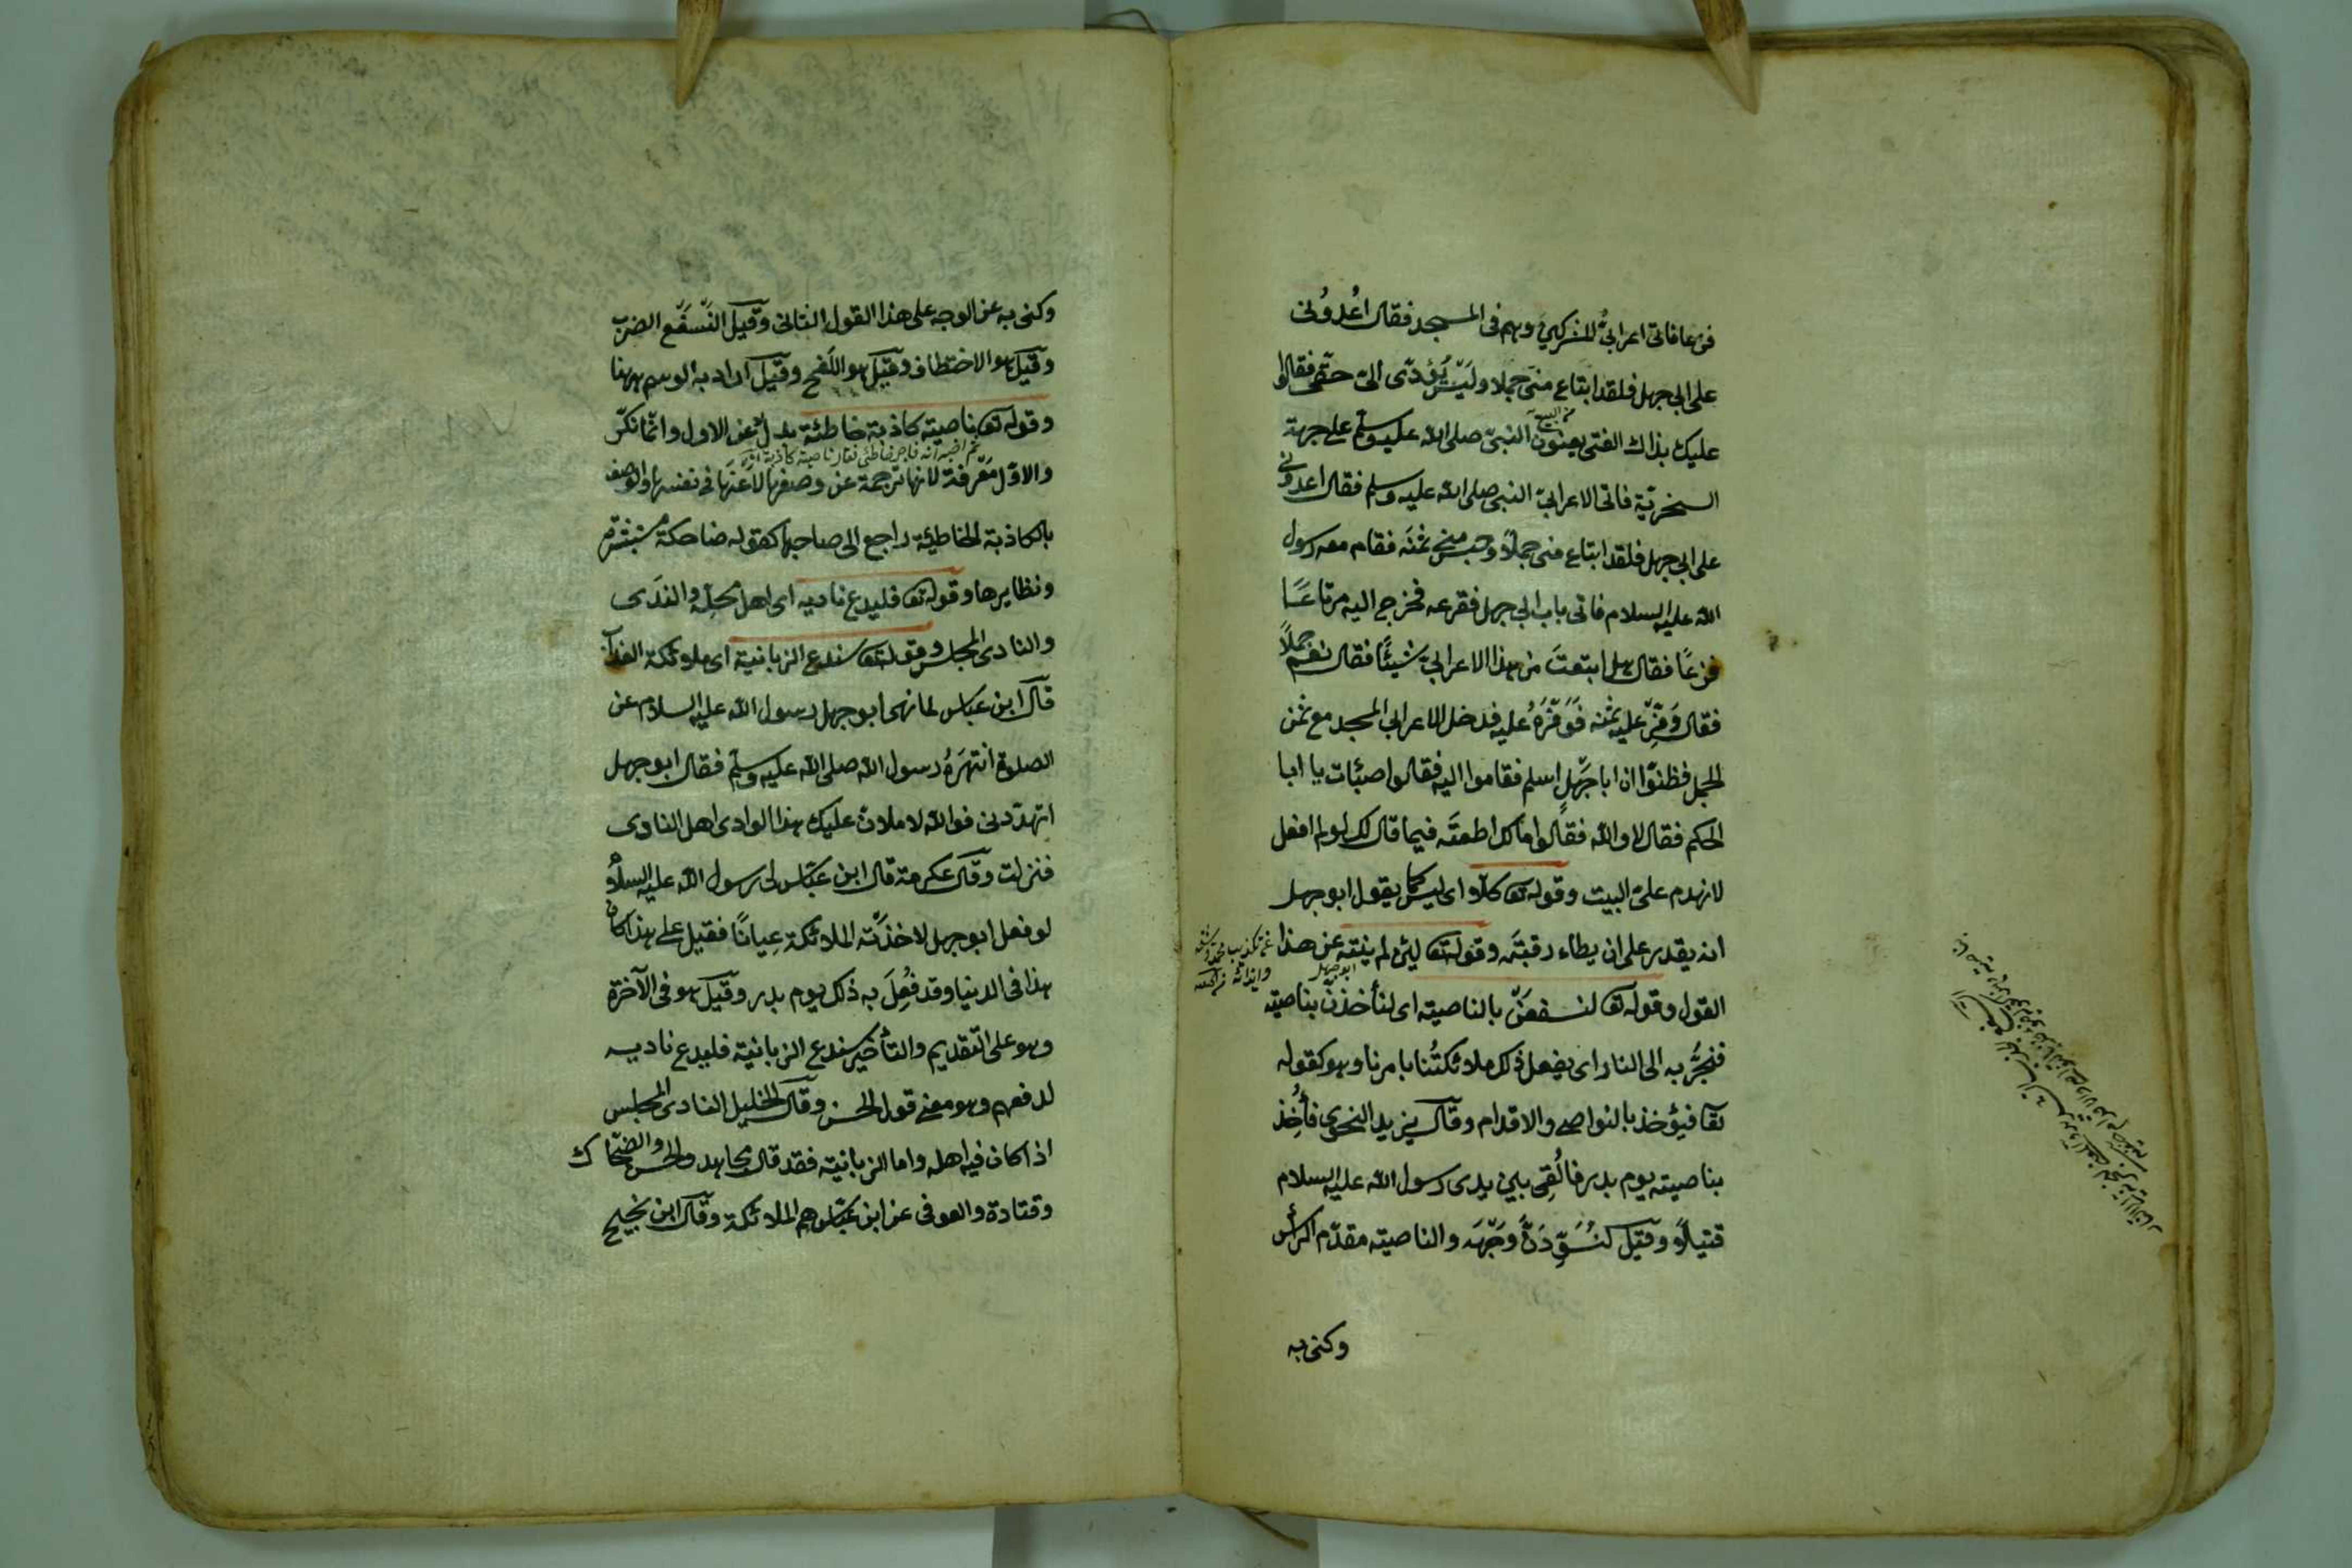 فزعا فاتى اعرابىٌّ للمشركين وهم فى المسجد فقال اُعْدُونى
على ابى جهل فلقد ابتاع منى جملا وليس يُؤدّى الىّ حقى فقالوا
عليك بذاك الفتى يعنون النبىّ صلى الله عليه وسلم على جهة
السخريّة فاتى الاعرابىّ النبى صلى الله عليه وسلم فقال اعدونى
على ابى جهل فلقد ابتاع منى جملًا وحبس منى ثمنَه فقام معه رسول
الله عليه السلام فاتى باب ابى جهل فقرعه فخرج اليه مرتاعًا
فزعًا فقال هل ابتعتَ من هذا الاعرابىّ شيئًا فقال نعم جملًا
فقال وَفِّرْ عليه ثمنه فَوَفَّرَهُ عليه فدخل الاعرابى المسجد مع ثمن
الجمل فظنوّا ان ابا جَهْلٍ اسلم فقاموا اليه فقالوا صبئات يا ابا
الحكم فقال لا والله فقالوا مالك اطعتَه فيما قال لك لو لم افعل
لانهدم علىّ البيت وقوله تعا كلّا اى ليس كما يقول ابو جهل
انه يقدر على ان يطاء رقبتَه وقوله تعا لئن لم ينته عن هذا
القول وقوله تعا لنسفعَنْ بالناصيته اى لنأخذنّ بناصيته
فنجرُّ به الى النار اى يفعل ذلك ملائكتُنا بامرنا وهو كقوله
تعا فيؤخذ بالنواصى والاقدام وقال يزيد النحوى فأُخِذ
بناصيته يوم بدر فاُلقِى بين يدى رسول الله عليه السلام
قتيلاً وقيل لنُسَوِّدَنَّ وَجْهَه والناصيته مقدّم الرأس
وكنى به
وكنى به عن الوجه على هذا القول الثانى وقيل السَّفْع الضرب
وقيل هو الاختطاف وقيل هو اللفح وقيل اراد به الوسم ههنا
وقوله تعا ناصيته كاذبة خاطئة بدل عن الاول وانّما نكّر
والاوّل مَعْرفة لانها ترجمة عن وصفها لا عنها فى نفسها والوصف
بالكاذبة الخاطئة راجع الى صاحبها كقوله ضاحكة مستبشرة
ونظايرها وقوله تعا فليدع ناديه اى اهل مجلسه والندى
والنادى المجلس وقوله تعا سندع الزبانية اى ملائكة العذاب
قال ابن عباس لما نهى ابو جهل رسول الله عليه السلام عن
الصلوة انتهَرَهُ رسول الله صلى الله عليه وسلم فقال ابو جهل
اتهدّدنى فوالله لاملأنّ عليك هذا الوادى اهل النادى
فنزلت وقال عكرمة قال ابن عبّاس رسول الله عليه السلام
لو فعل ابو جهل لاخذَتْه الملائكة عِيانًا فقيل على هذا كان
هذا فى الدنيا وقد فُعِلَ به ذلك يوم بدر وقيل هو فى الآخرة
وهو على التقديم والتأخير سندع الزبانية فليدع ناديه
لدفعهم وهو معنى قول الحسن وقال الخليل النادى المجلس
اذا كان فيه اهله واما الزبانية فقد قال مجاهد والحسن والضحّاك
وقتادة والعوفى عن ابن عبّاس هم الملائكة وقال ابن نجيح